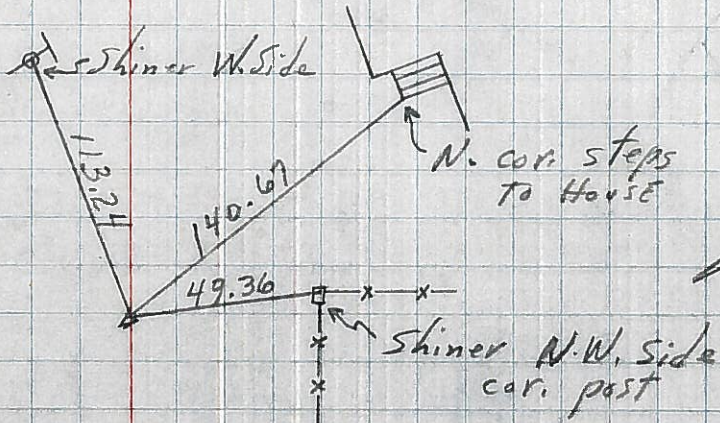 Shiner W. Side
113.24
140.67
N. cor. steps
to House
49.36
Shiner N.W. Side
cor. post